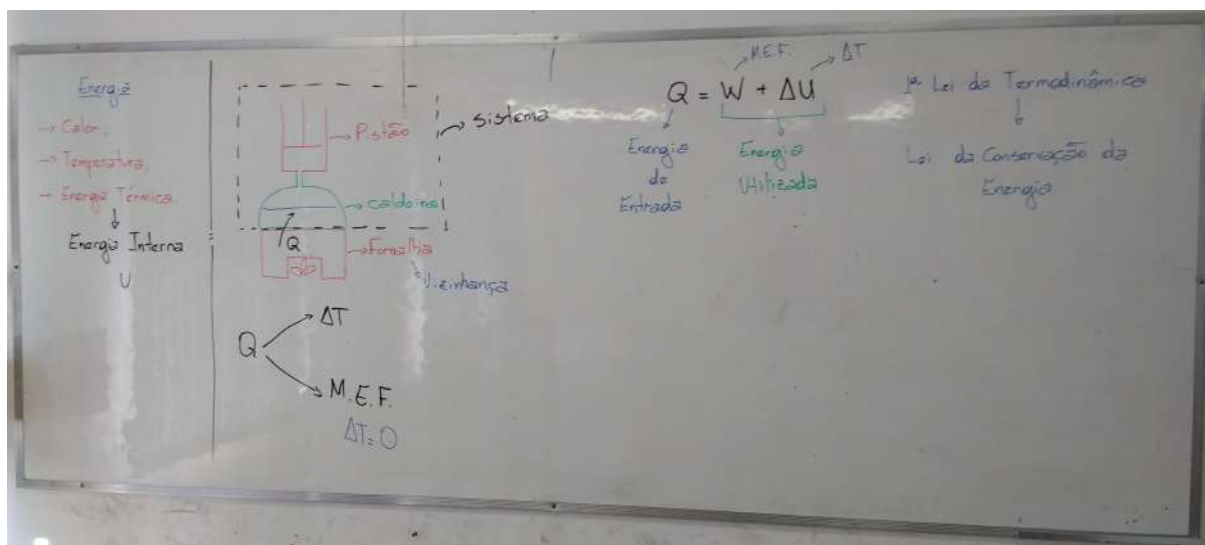 Energia
→ Calor,
→ Temperatura,
→ Energia Térmica.
Energia Interna
U
Pistão
Sistema
Caldeira
Q
Fornalha
Vizinhança
Q
ΔT
M.E.F.
ΔT=0
M.E.F.
ΔT
Q = W + ΔU
Energia
de
Entrada
Energia
Utilizada
1ª Lei da Termodinâmica
Lei da Conservação da
Energia